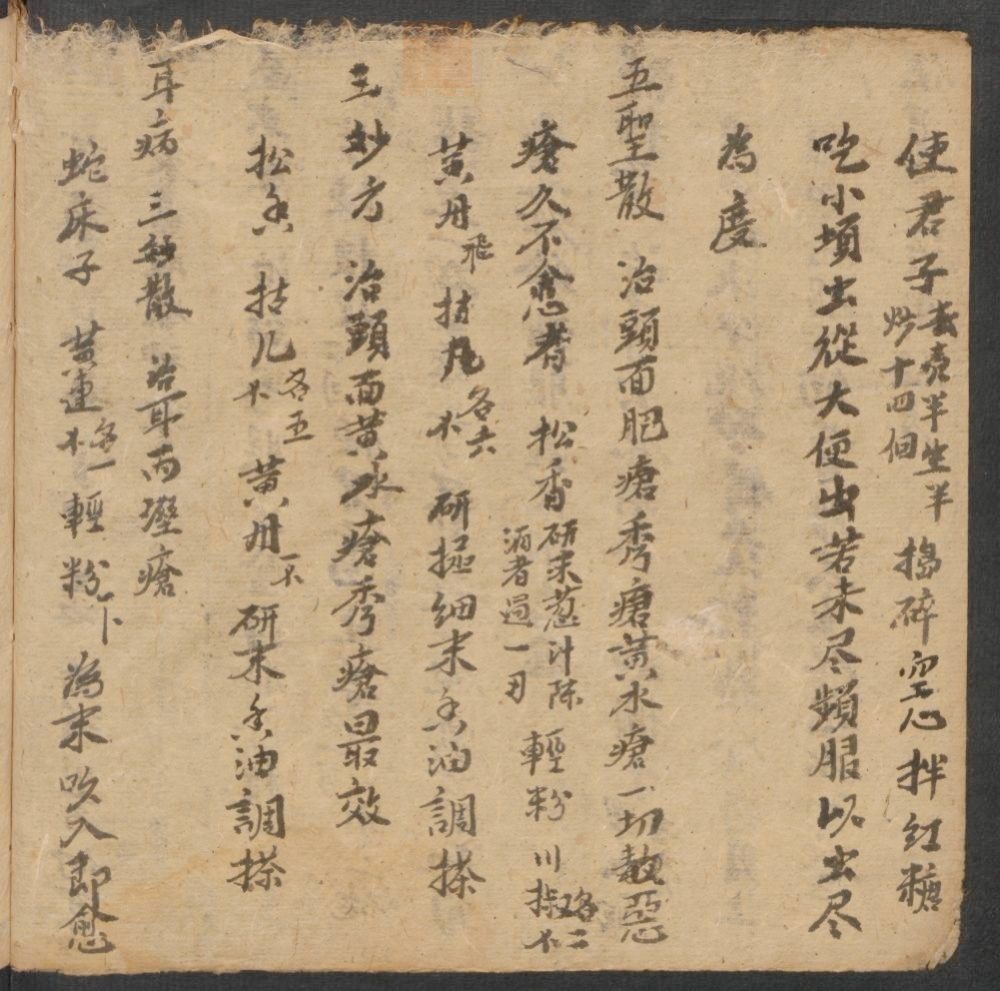 使君子去壳半生半炒十四個搗碎空心拌红糖
吃小頃虫從大便出若未尽頻服以虫尽
為度
五聖散 治頭面肥瘡秃瘡黄水瘡一切毒惡
瘡久不愈者 松香研末葱汁陈酒煮過一刃 輕粉 川椒各二不
黄丹飛 枯凡各六不 研極細末香油調搽
三妙方 治頭面黄水瘡秃瘡最效
松香 枯凡各五不 黄丹一不 研末香油調搽
耳病 三妙散 治耳内溼瘡
蛇床子 黄連各一不 輕粉 為末吹入即愈